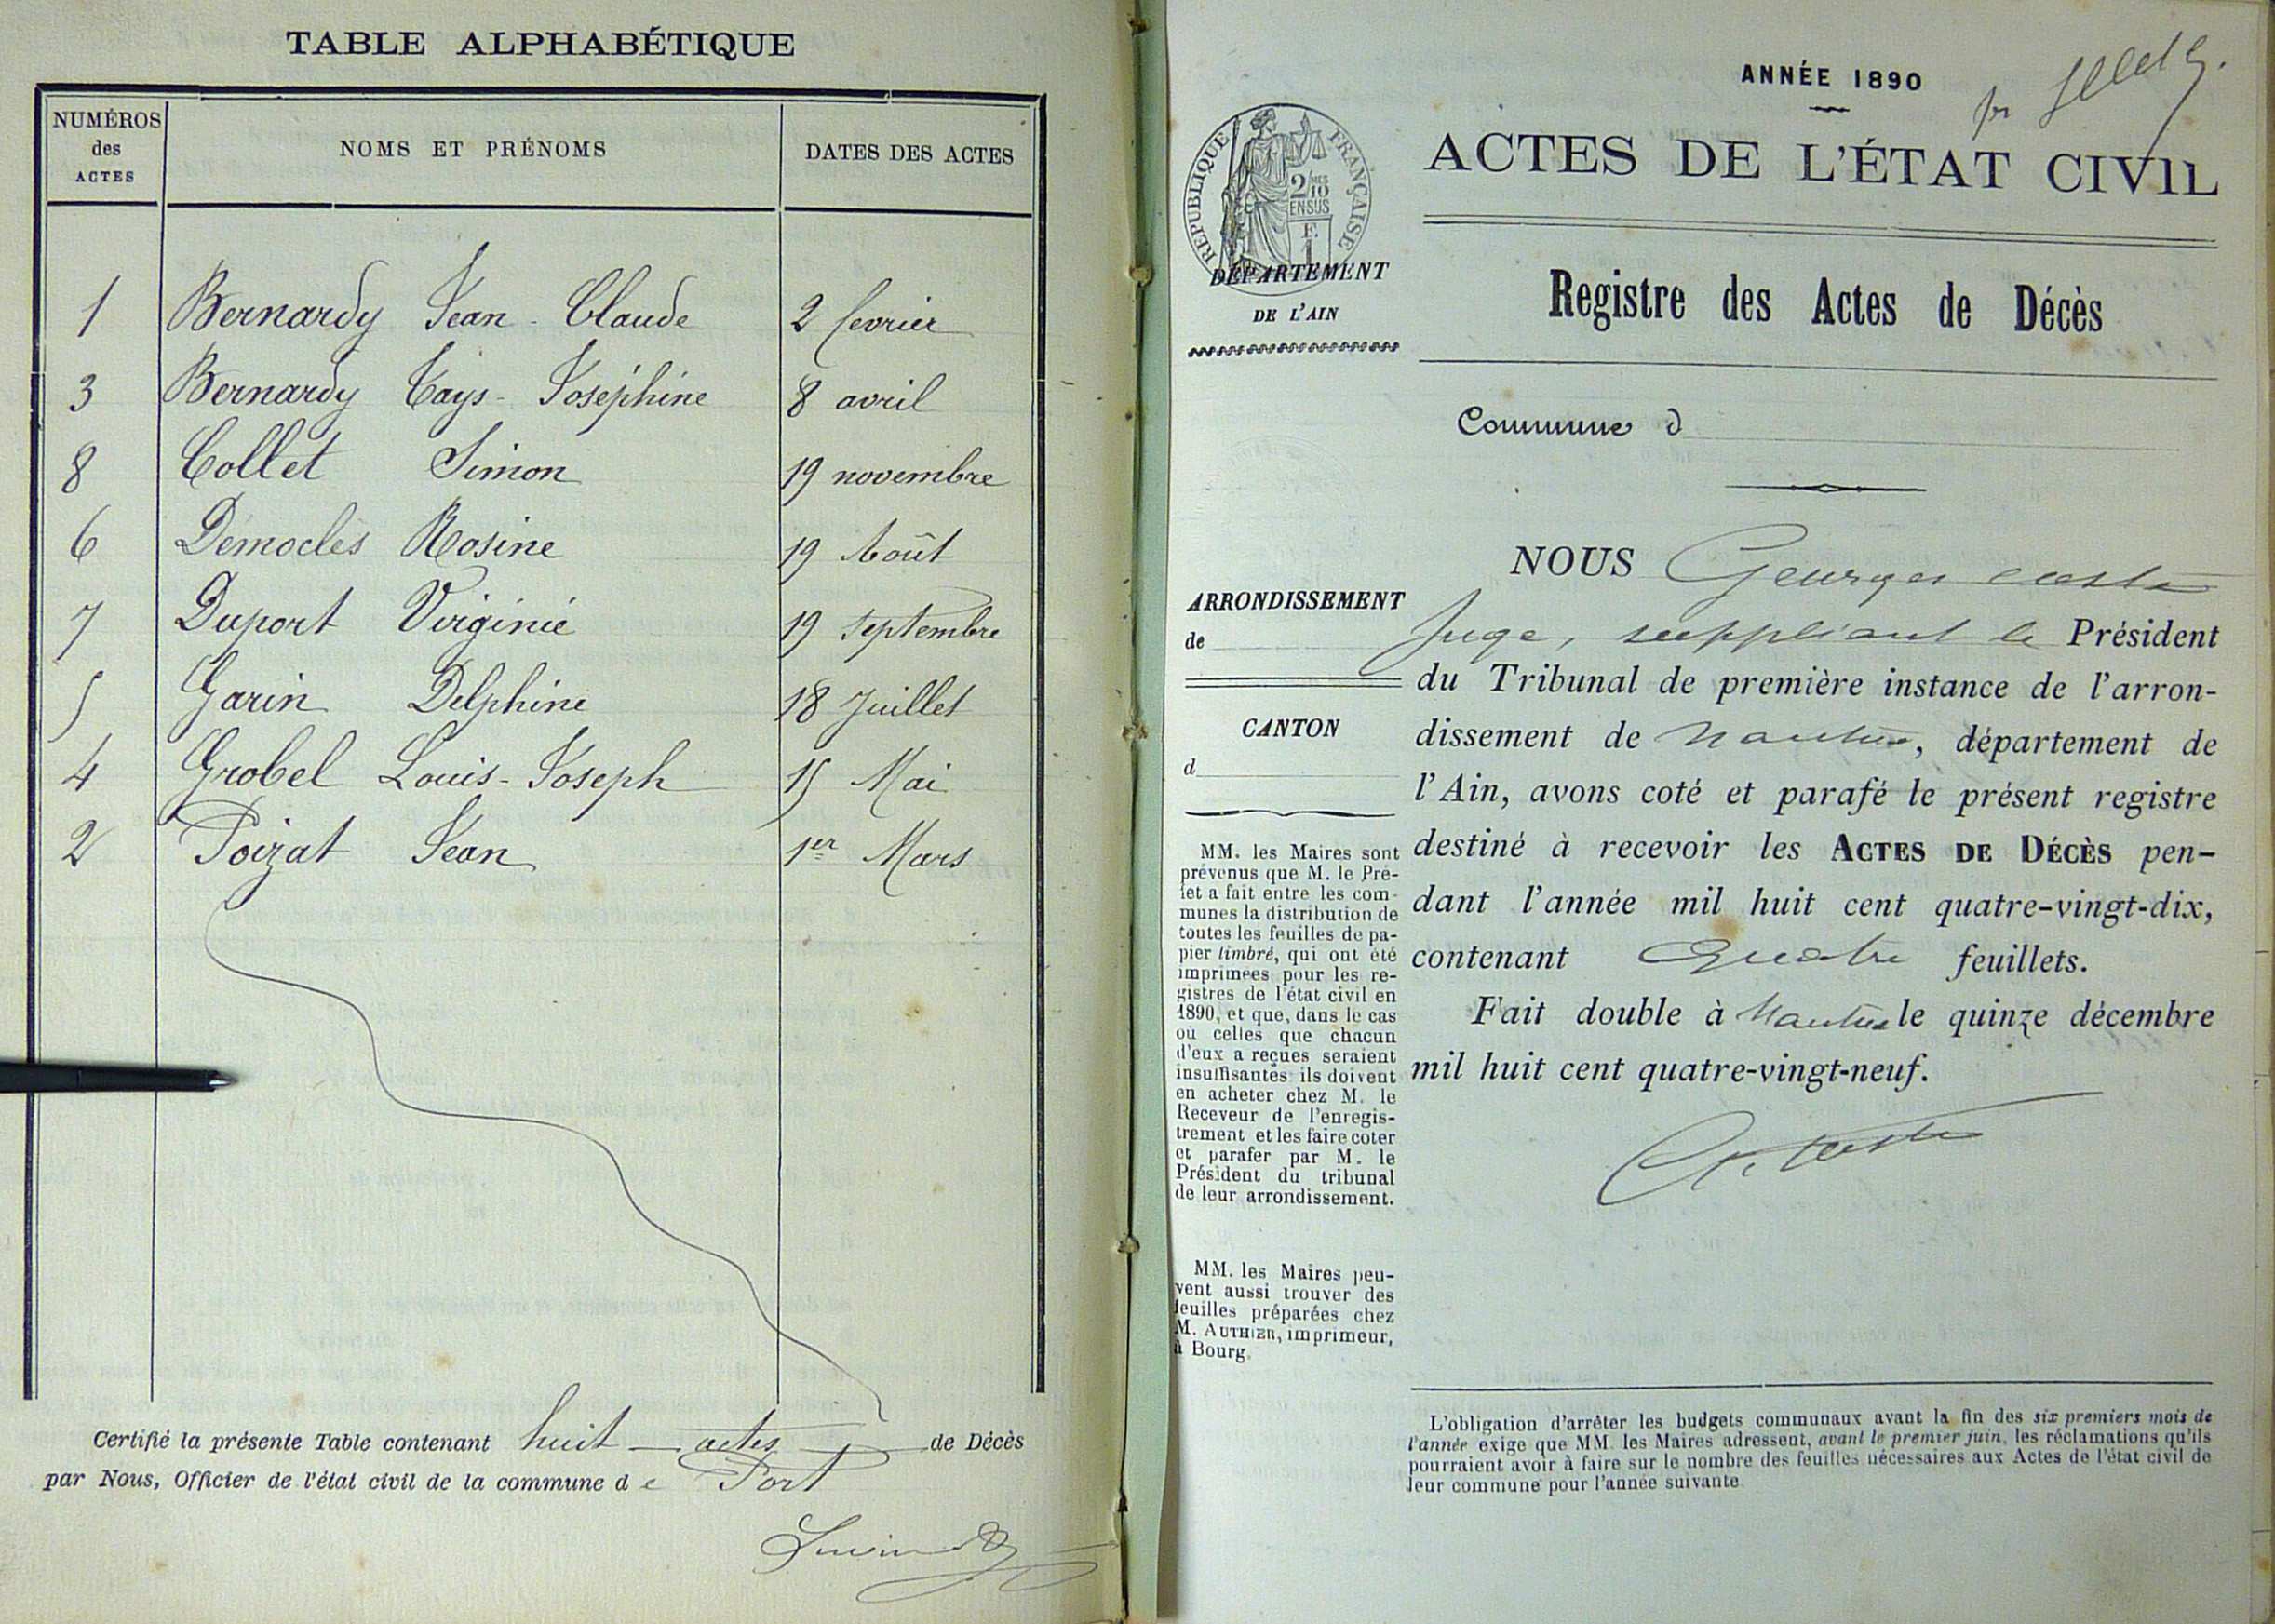 TABLE ALPHABÉTIQUE
NUMÉROS
des
ACTES
NOMS ET PRÉNOMS
DATES DES ACTES
1 Bernardy Jean-Claude 2 fevrier
3 Bernardy Tays-Joséphine 8 avril
8 Collet Simon 19 novembre
6 Démoclès Rosine 19 Août
7 Duport Virginie 19 septembre
5 Garin Delphine 18 Juillet
4 Grobel Louis-Joseph 15 Mai
2 Poizat Jean 1er Mars
Certifié la présente Table contenant huit actes de Décès
par Nous, Officier de l'état civil de la commune de Port
ANNÉE 1890
ACTES DE L'ÉTAT CIVIL
RÉPUBLIQUE FRANÇAISE
2/10MES
EN SUS
F.
1
DÉPARTEMENT
DE L'AIN
Registre des Actes de Décès
Commune d
ARRONDISSEMENT
de
CANTON
d
MM. les Maires sont
prévenus que M. le Pré-
fet a fait entre les com-
munes la distribution de
toutes les feuilles de pa-
pier timbré, qui ont été
imprimées pour les re-
gistres de l'état civil en
1890, et que, dans le cas
où celles que chacun
d'eux a reçues seraient
insuffisantes ils doivent
en acheter chez M. le
Receveur de l'enregis-
trement et les faire coter
et parafer par M. le
Président du tribunal
de leur arrondissement.
MM. les Maires peu-
vent aussi trouver des
feuilles préparées chez
M. AUTHIER, imprimeur,
à Bourg.
NOUS Georges
Juge, suppléant le Président
du Tribunal de première instance de l'arron-
dissement de Nantua, département de
l'Ain, avons coté et parafé le présent registre
destiné à recevoir les ACTES DE DÉCÈS pen-
dant l'année mil huit cent quatre-vingt-dix,
contenant Quatre feuillets.
Fait double à Nantua le quinze décembre
mil huit cent quatre-vingt-neuf.
L'obligation d'arrêter les budgets communaux avant la fin des six premiers mois de
l'année exige que MM. les Maires adressent, avant le premier juin, les réclamations qu'ils
pourraient avoir à faire sur le nombre des feuilles nécessaires aux Actes de l'état civil de
leur commune pour l'année suivante.